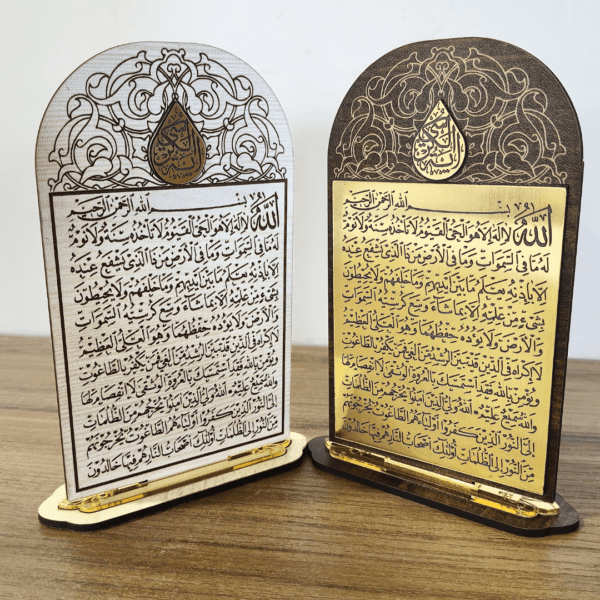 بسم الله الرحمن الرحيم
الله لا اله الا هو الحي القيوم لا تأخذه سنة ولا نوم
له ما في السموات وما في الارض من ذا الذي يشفع عنده
الا باذنه يعلم ما بين ايديهم وما خلفهم ولا يحيطون
بشيء من علمه الا بما شاء وسع كرسيه السموات
والارض ولا يؤده حفظهما وهو العلي العظيم
لا اكراه في الدين قد تبين الرشد من الغي فمن يكفر بالطاغوت
ويؤمن بالله فقد استمسك بالعروة الوثقى لا انفصام لها
والله سميع عليم الله ولي الذين امنوا يخرجهم من الظلمات
الى النور والذين كفروا اولياؤهم الطاغوت يخرجونهم
من النور الى الظلمات اولئك اصحاب النار هم فيها خالدون
بسم الله الرحمن الرحيم
الله لا اله الا هو الحي القيوم لا تأخذه سنة ولا نوم
له ما في السموات وما في الارض من ذا الذي يشفع عنده
الا باذنه يعلم ما بين ايديهم وما خلفهم ولا يحيطون
بشيء من علمه الا بما شاء وسع كرسيه السموات
والارض ولا يؤده حفظهما وهو العلي العظيم
لا اكراه في الدين قد تبين الرشد من الغي فمن يكفر بالطاغوت
ويؤمن بالله فقد استمسك بالعروة الوثقى لا انفصام لها
والله سميع عليم الله ولي الذين امنوا يخرجهم من الظلمات
الى النور والذين كفروا اولياؤهم الطاغوت يخرجونهم
من النور الى الظلمات اولئك اصحاب النار هم فيها خالدون